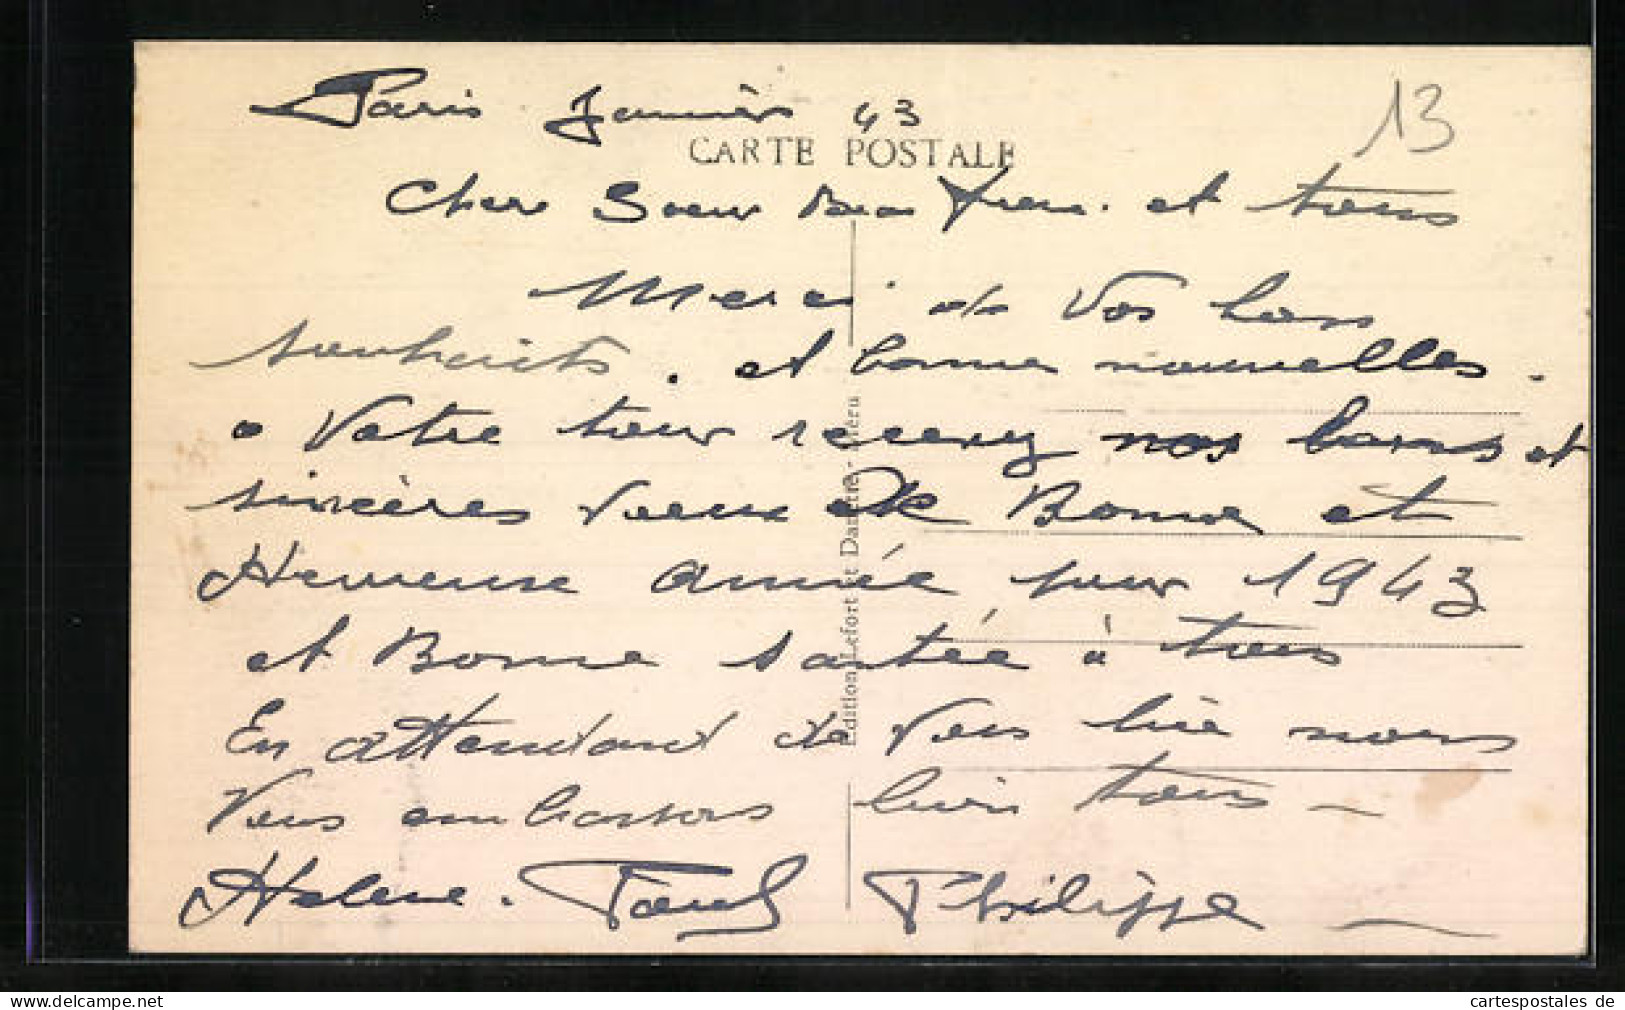 Paris Janvier 43
13
CARTE POSTALE
Cher Soeur Beau Frere. et tous
Merci de Vos bons
souhaits. et bonne nouvelles.
a Votre tour recevez nos bons et
sincères Voeux de Bonne et
Heureuse année pour 1943
et Bonne santée à tous
En attendand de Vous lire nous
Vous embrassons bien tous -
Helene. Paul Philippe -
Edition Lefort et Danettre - Méru
cartespostales de